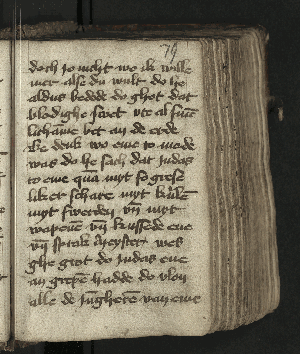 79
doch jo nicht wo ik wille
mer alse du wult do he
aldus bedede do ghet dat
blodighe swet vte al sine
lichame bet an de erde
Be denk wo eme to mode
was do he sach dat Judas
to eme quā myt so grote
liker schare myt kulē
myt swerden vn̄ myt
wapenē vn̄ kussede ene
vn̄ sprak Meyster wes
ghe grot do Judas ene
an grepē hadde do vlon
alle de Jūgherē van eme